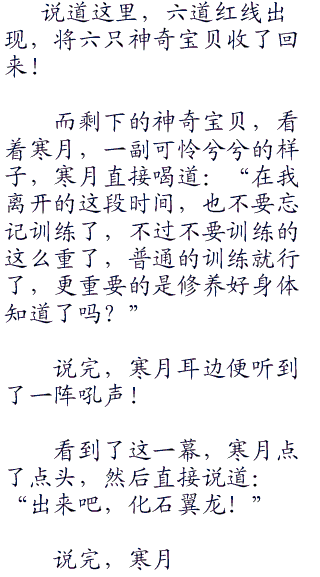 说道这里，六道红线出
现，将六只神奇宝贝收了回
来！
而剩下的神奇宝贝，看
着寒月，一副可怜兮兮的样
子，寒月直接喝道：“在我
离开的这段时间，也不要忘
记训练了，不过不要训练的
这么重了，普通的训练就行
了，更重要的是修养好身体
知道了吗？”
说完，寒月耳边便听到
了一阵吼声！
看到了这一幕，寒月点
了点头，然后直接说道：
“出来吧，化石翼龙！”
说完，寒月